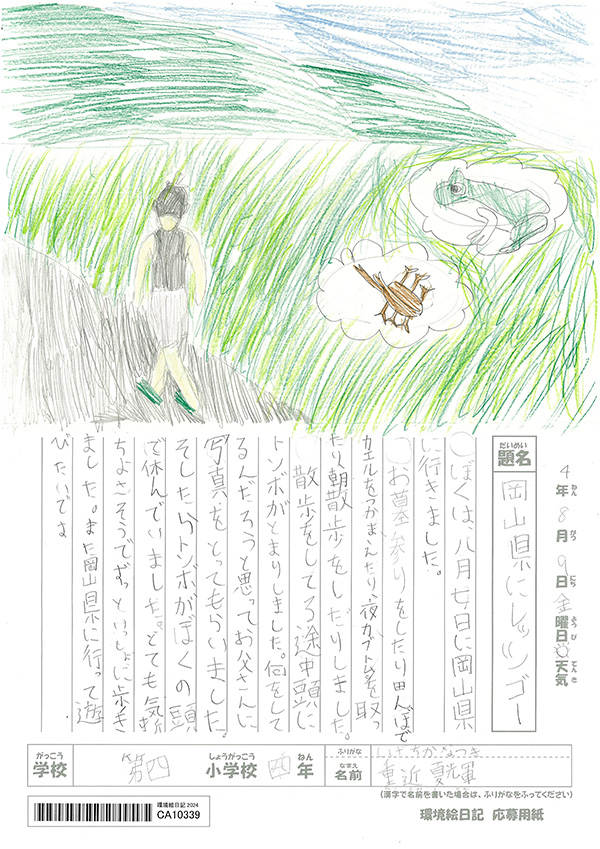 4年8月9日金曜日 天気
ねん がつ にち ようび てんき
だいめい
題名
岡山県にレッツゴー
ぼくは、八月七日に岡山県
に行きました。
お墓参りをしたり田んぼで
カエルをつかまえたり、夜カブト虫を取っ
たり朝散歩をしたりしました。
散歩をしてる途中頭に
トンボがとまりました。何をして
るんだろうと思ってお父さんに
写真をとってもらいました。
そしたらトンボがぼくの頭
で休んでいました。とても気持
ちよさそうでずっといっしょに歩き
ました。また岡山県に行って遊
びたいです
がっこう しょうがっこう ねん
学校 第四 小学校 四年
ふりがな しげちかなつき
なまえ
名前 重近 夏輝
(漢字で名前を書いた場合は、ふりがなをふってください)
環境絵日記 2024
CA10339
環境絵日記 応募用紙